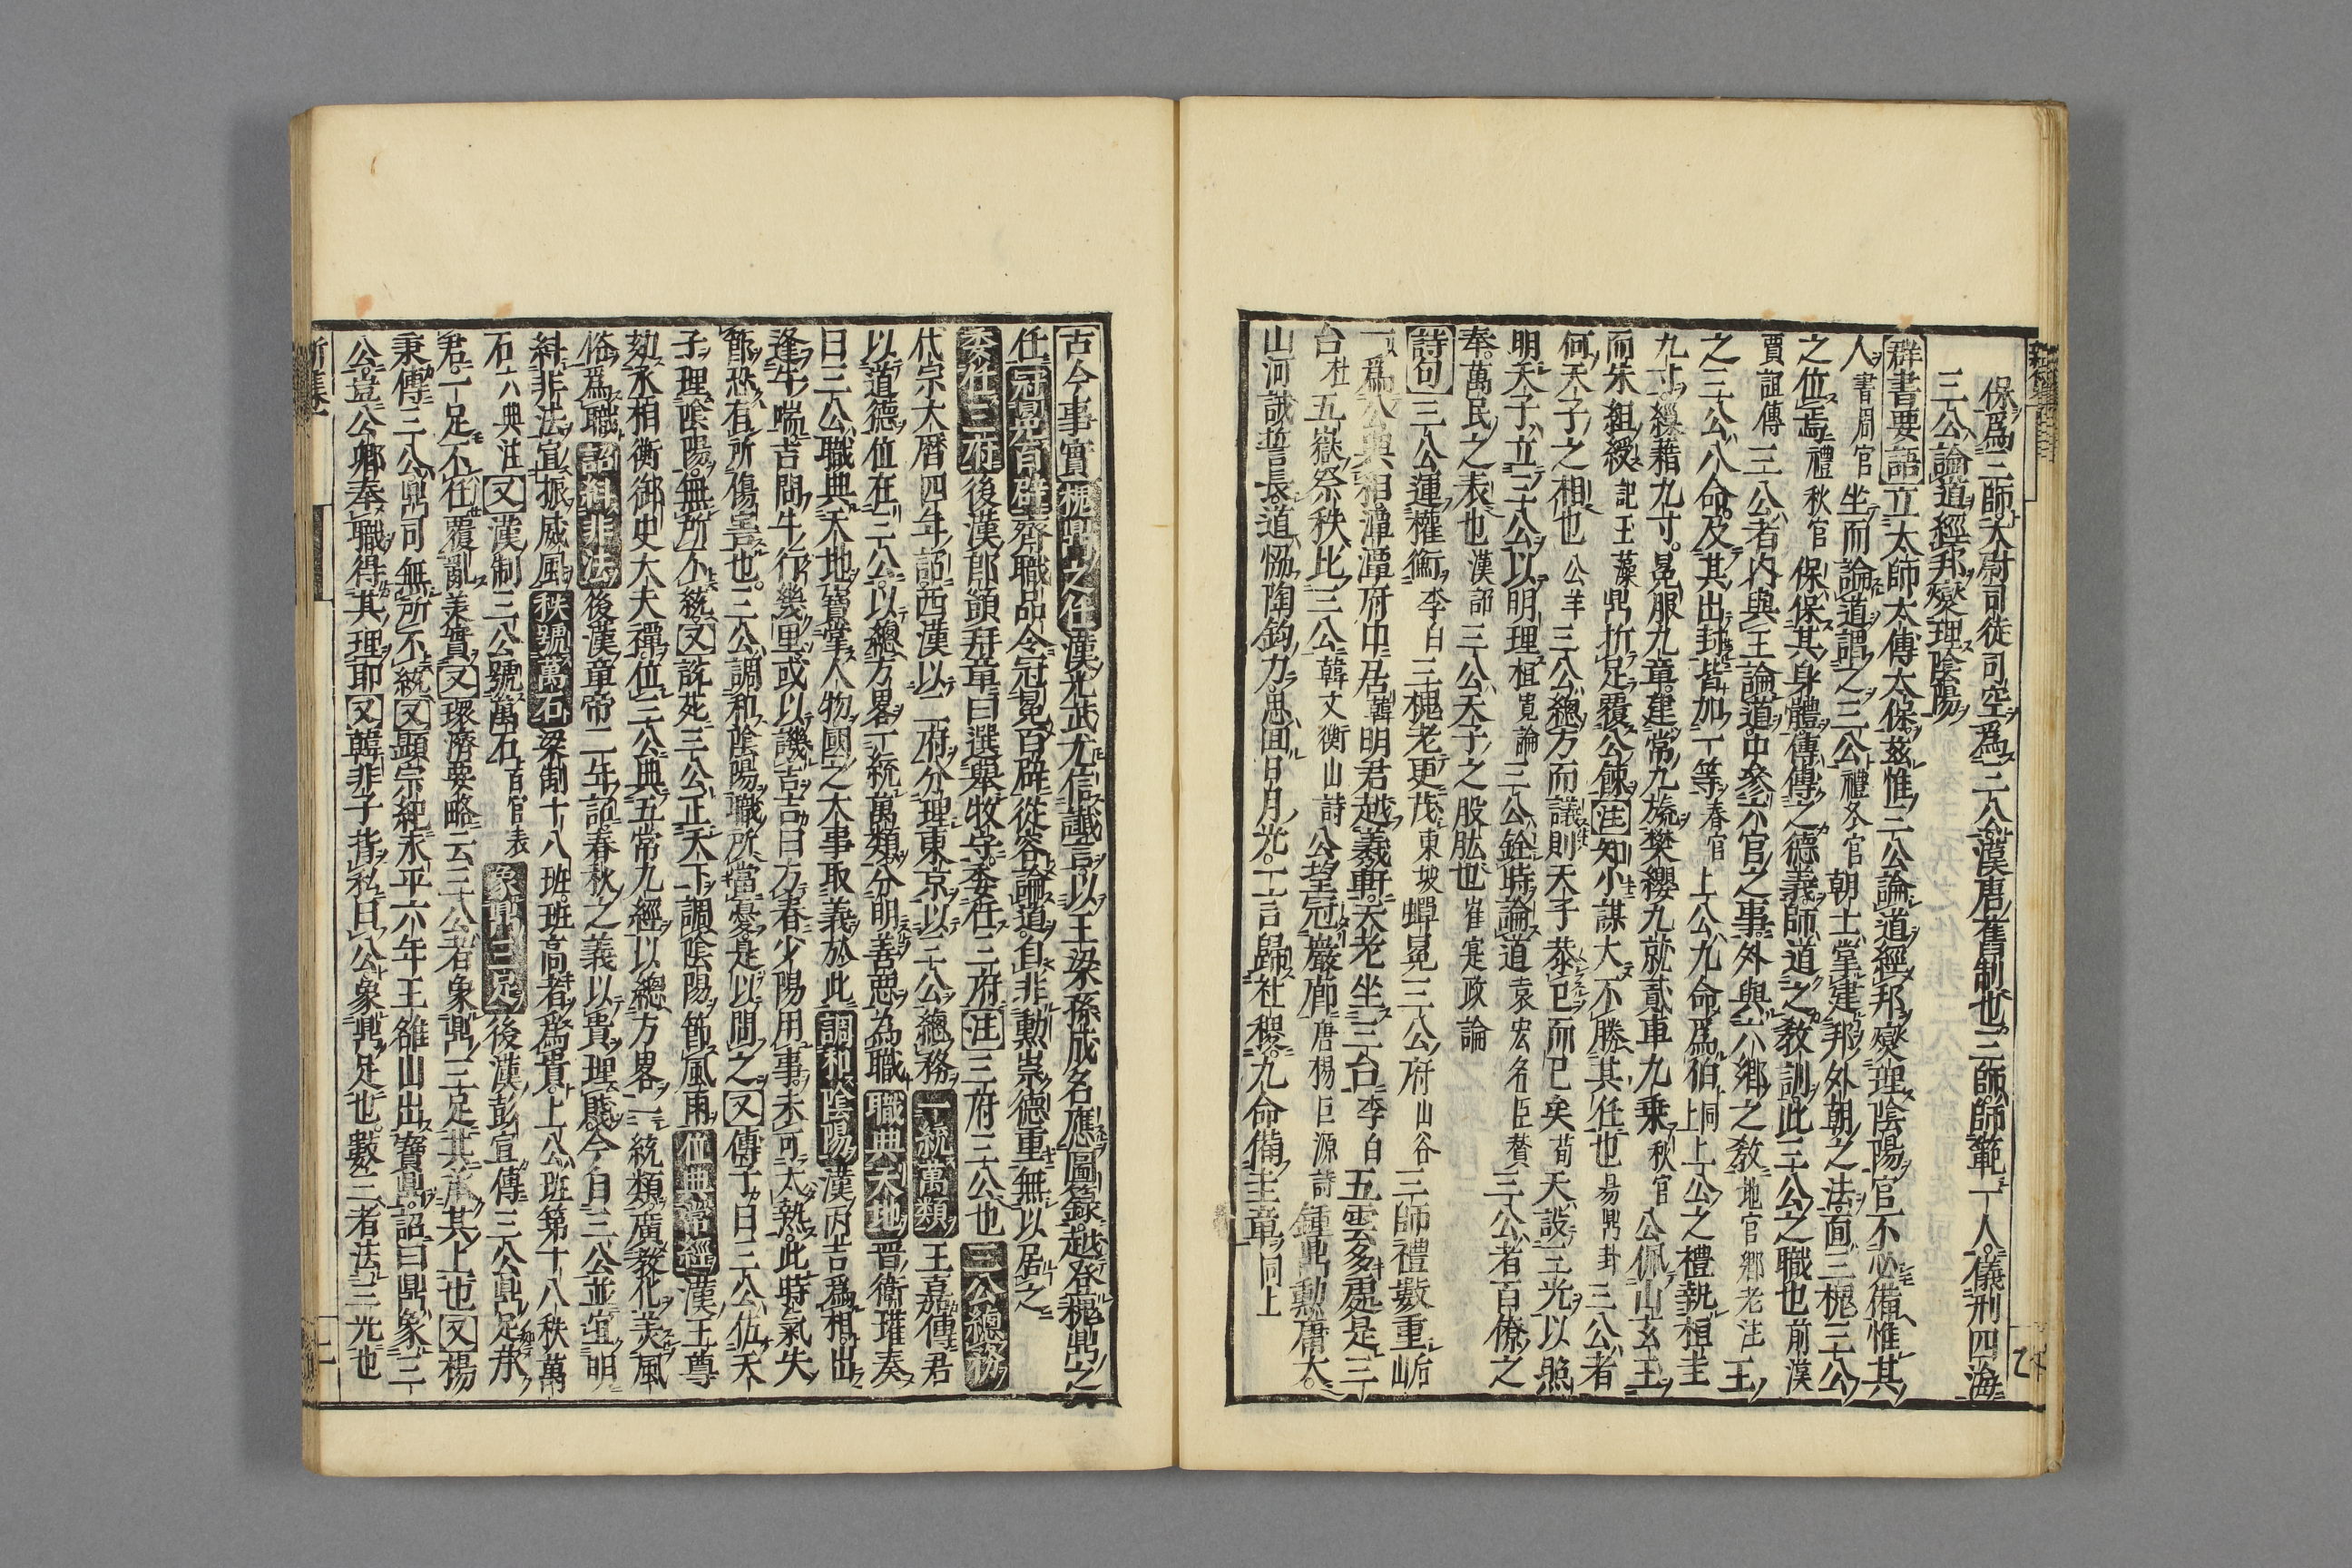 保爲三師太尉司徒司空爲三公漢唐舊制也三師師範一人儀刑四海
三公論道經邦燮理陰陽
群書要語立太師太傅太保茲惟三公論道經邦燮理陰陽官不必備惟其
人書周官坐而論道謂之三公禮冬官朝士掌建邦外朝之法面三槐三公
之位焉禮秋官保保其身體傅傅之德義師道之敎訓此三公之職也前漢
賈誼傳三公者内與王論道中參六官之事外與六鄉之敎地官鄉老注王
之三公八命及其出封皆加一等春官上公九命爲伯同上上公之禮執桓圭
九寸繅藉九寸冕服九章建常九旒樊纓九就貳車九乗秋官公佩山玄玉
而朱組綬記玉藻鼎折足覆公餗注知小謀大不勝其任也易鼎卦三公者
何天子之相也公羊三公總方而議則天子恭已而已矣荀天設三光以照
明天子立三公以明理桓寬論三公銓時論道袁宏名臣賛三公者百僚之
奉萬民之表也漢郎三公天子之股肱也崔寔政論
詩句三公運權衡李白三槐老更茂東坡蟬冕三公府山谷三師禮數重
爲公與相潭潭府中居韓明君越羲軒天老坐三台李白五雲多處是三
台杜五嶽祭秩比三公韓文衡山詩公望冠巖廊唐楊巨源詩鍾鼎勲庸大
山河誠誓長道恊陶鈞力思囬日月光一言歸社稷九命備圭章同上
古今事實槐鼎之任漢光武尤信讖言以王梁孫咸名應圖籙越登槐鼎之
任冠冕百辟齊職品令冠冕百辟從容論道自非勲崇德重無以居之
委任三府後漢郎顗拜章曰選舉牧守委任三府注三府三公也三公總務
代宗大暦四年詔西漢以二府分理東京以三公總務一統萬類王嘉傳君
以道德位在三公以總方畧一統萬類分明善惡為職職典天地晋衛瓘奏
曰三公職典天地寶掌人物國之大事取義於此調和陰陽漢丙吉爲相出
逢牛喘吉問牛行幾里或以譏吉吉曰方春少陽用事未可太熱此時氣失
節恐有所傷害也三公調和陰陽職所當憂是以問之又傅子曰三公佐天
子理陰陽無所不統又許㷛三公正天下調陰陽節風雨位典常經漢王尊
劾丞相衡御史大夫禪位三公典五常九經以總方畧一統類廣敎化美風
俗爲職詔糾非法後漢章帝二年詔春秋之義以貴理賤今自三公並宜明
糾非法宣振威風秩號萬石梁制十八班班高者爲貴上公班第十八秩萬
石六典注又漢制三公號萬石百官表象鼎三足後漢彭宣傳三公鼎足承
君一足不任覆亂美實又環濟要略云三公者象鼎三足共承其上也又楊
秉傳三公鼎司無所不統又顯宗紀永平六年王雒山出寳鼎詔曰鼎象三
公豈公卿奉職得其理耶又韓非子背私曰公象鼎足也數三者法三光也